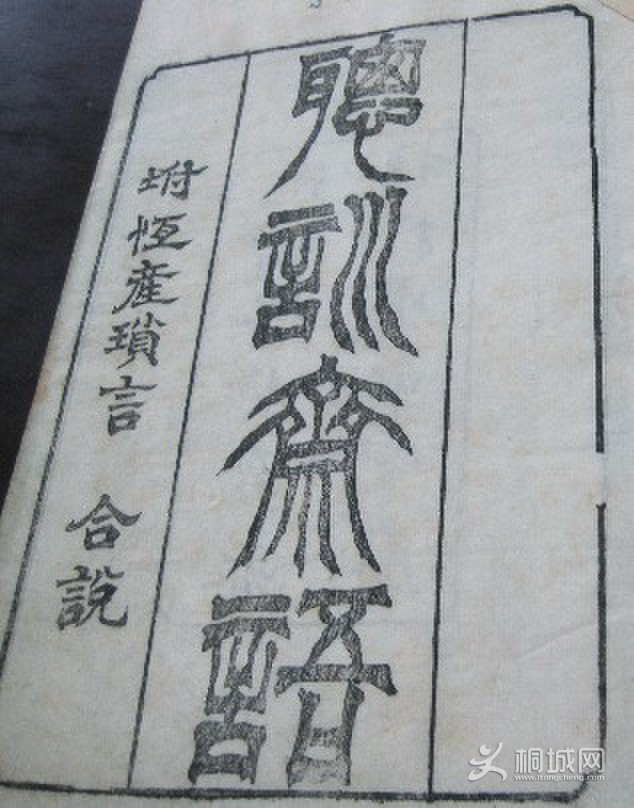 聰訓齋語
坿恆產瑣言 合說
桐城网
www.itongcheng.com